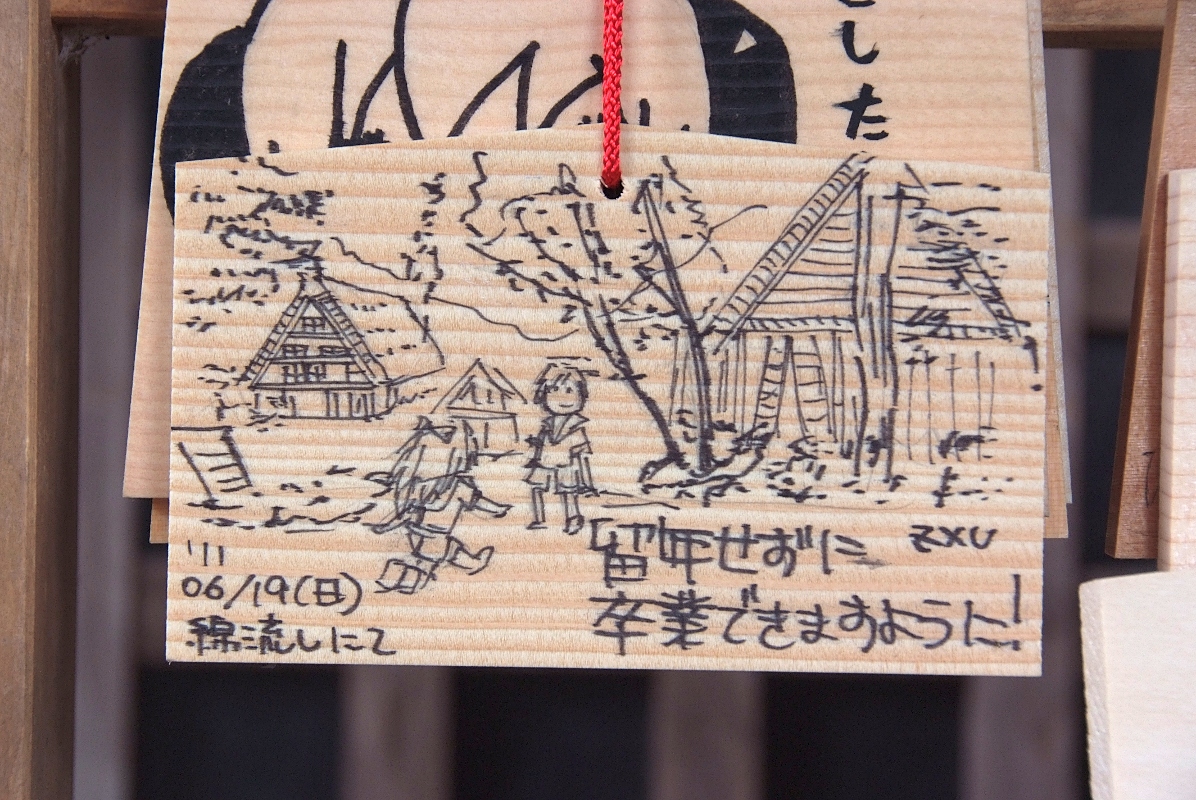 した
留年せずに
zxu
卒業できますように!
'11
06/19(日)
綿流しにて